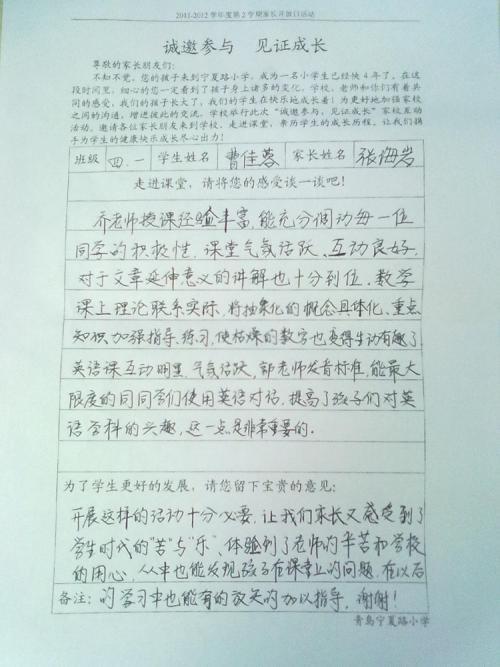 2011-2012学年度第2学期家长开放日活动
诚邀参与 见证成长
尊敬的家长朋友们:
不知不觉,您的孩子来到宁夏路小学,成为一名小学生已经快4年了。在这
段时间里,细心的您一定看到了孩子身上诸多的变化。学校、老师和你们有着共
同的感受,我们的孩子长大了,我们的学生在快乐地成长着!为更好地加强家校
之间的沟通,增进彼此的交流。学校举行此次“诚邀参与、见证成长”家校互动
活动。邀请各位家长朋友来到学校,走进课堂,亲历学生的成长历程。让我们携
手为学生的健康快乐成长尽心出力!
班级 四.一 学生姓名 曹佳蓉 家长姓名 张海岩
走进课堂,请将您的感受谈一谈吧!
乔老师授课经验丰富,能充分调动每一位
同学的积极性,课堂气氛活跃、互动良好,
对于文章延伸意义的讲解也十分到位。数学
课上理论联系实际,将抽象化的概念具体化、重点
知识加强指导、练习,使枯燥的数字也变得生动有趣了
英语课互动明显,气氛活跃,郭老师发音标准,能最大
限度的同同学们使用英语对话,提高了孩子们对英
语学科的兴趣,这一点是非常重要的.
为了学生更好的发展,请您留下宝贵的意见:
开展这样的活动十分必要,让我们家长又感受到了
学生时代的“苦”与“乐”、体验到了老师的辛苦和学校
的用心,从中也能发现孩子在课堂上的问题,在以后
备注: 的学习中也能有的放矢的加以指导,谢谢!
青岛宁夏路小学